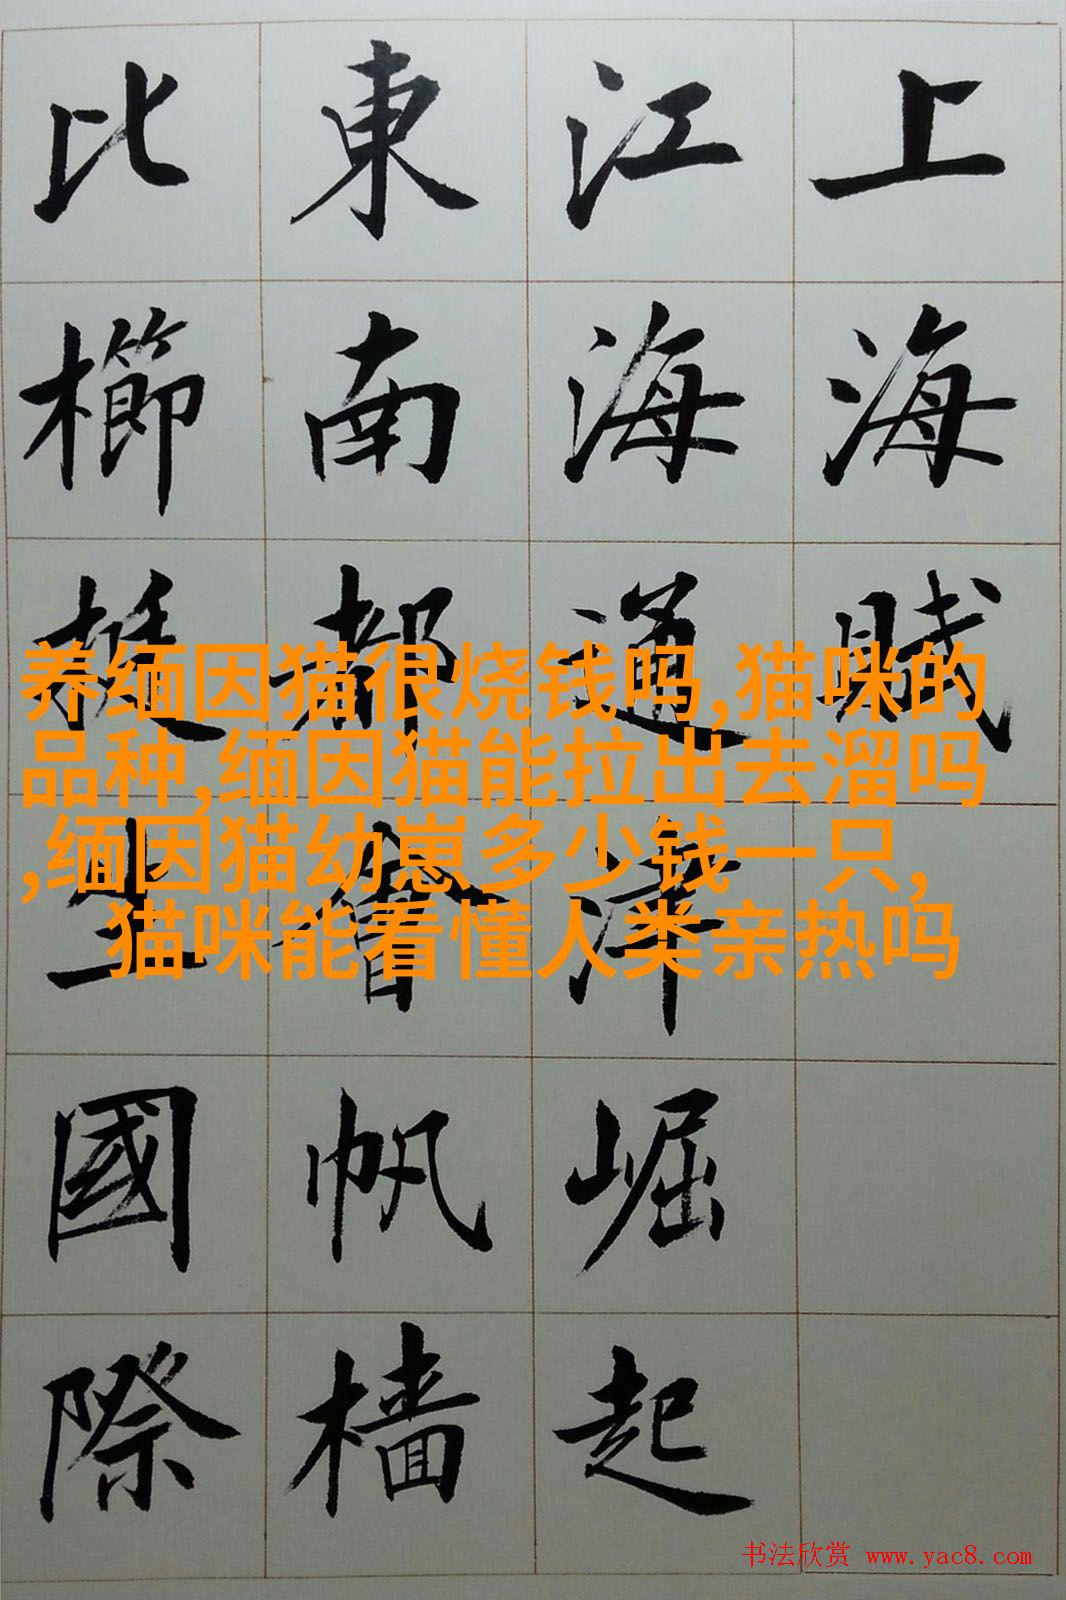 上海賦
江海通津崛起
東南都會帆樯
比櫛挺國際
养缅因猫很烧钱吗,猫咪的
品种,缅因猫能拉出去溜吗
,缅因猫幼崽多少钱一只,
猫咪能看懂人类亲热吗
书法欣赏 www.yac8.com